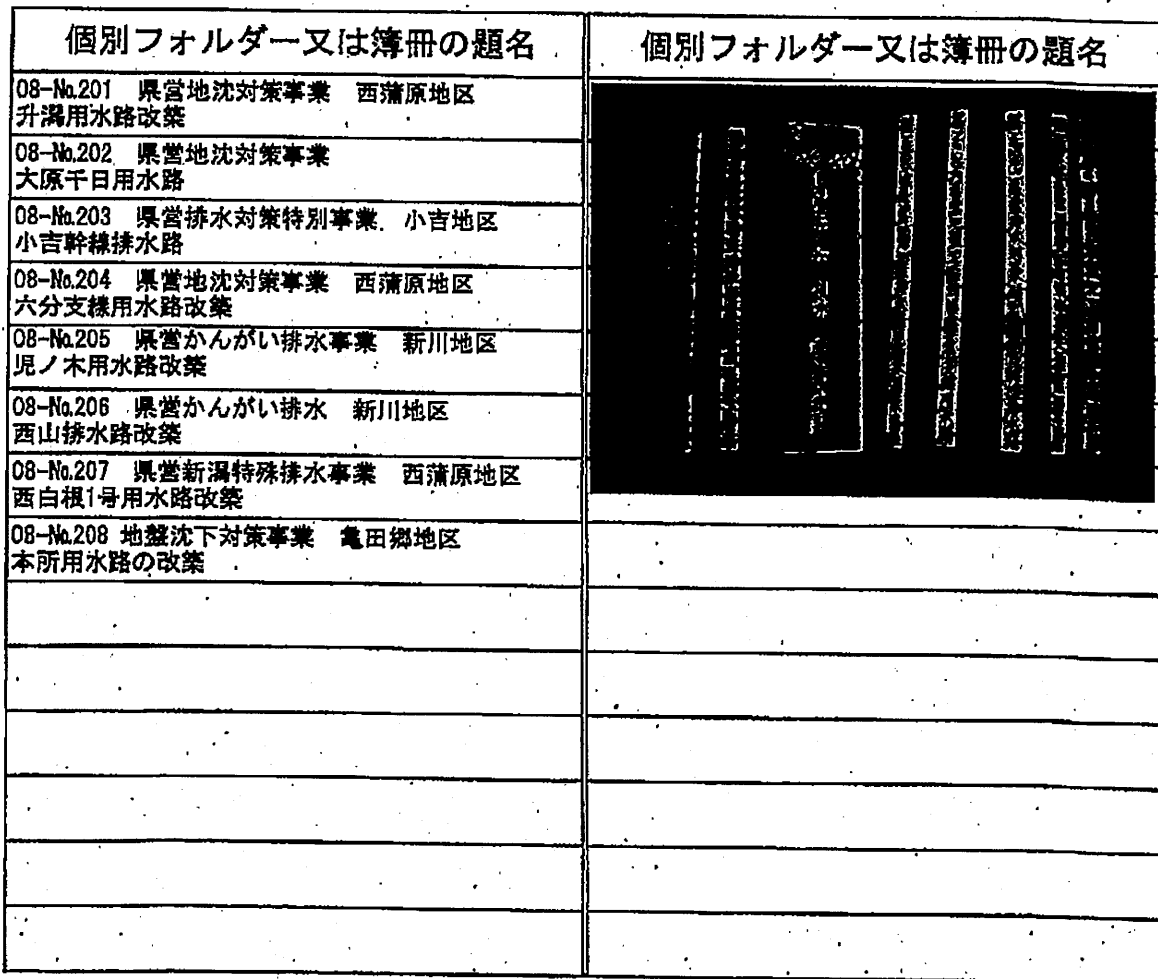 個別フォルダー又は簿冊の題名
08-№201 県営地沈対策事業 西蒲原地区
升潟用水路改築
08-№202 県営地沈対策事業
大原千日用水路
08-№203 県営排水対策特別事業 小吉地区
小吉幹線排水路
08-№204 県営地沈対策事業 西蒲原地区
六分支線用水路改築
08-№205 県営かんがい排水事業 新川地区
児ノ木用水路改築
08-№206 県営かんがい排水 新川地区
西山排水路改築
08-№207 県営新潟特殊排水事業 西蒲原地区
西白根1号用水路改築
08-№208 地盤沈下対策事業 亀田郷地区
本所用水路の改築
個別フォルダー又は簿冊の題名